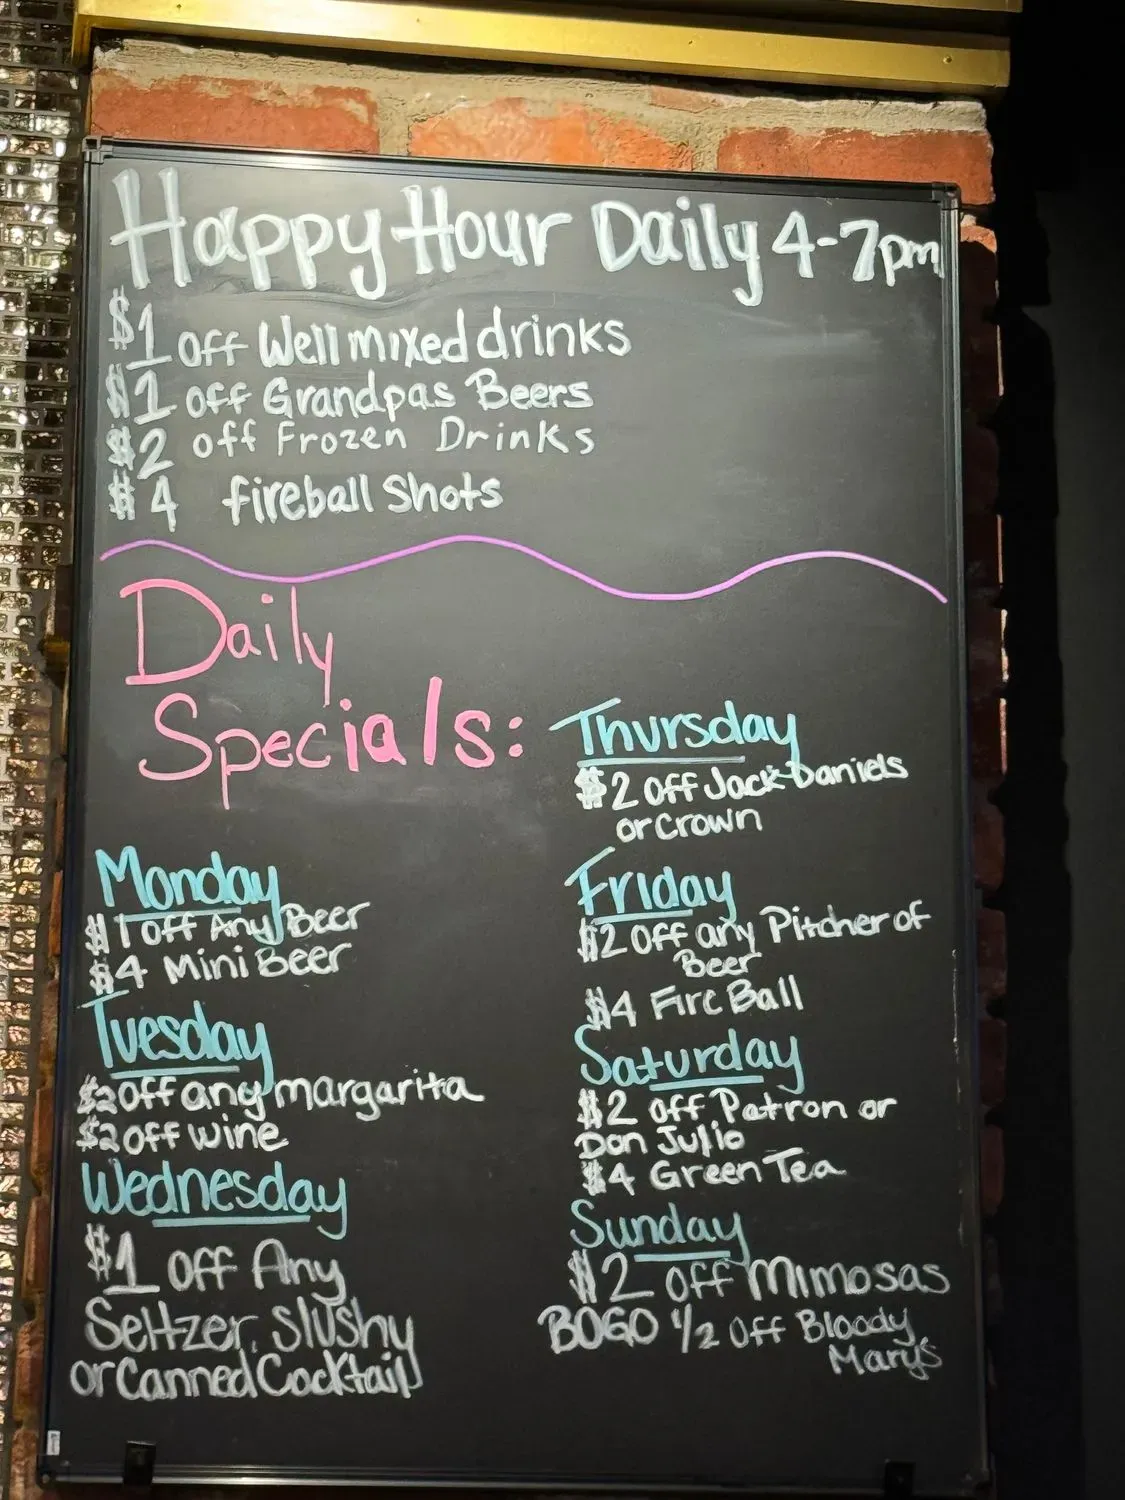 Happy Hour Daily 4-7pm
$1 off Well mixed drinks
$1 off Grandpas Beers
$2 off Frozen Drinks
$4 fireball Shots
Daily
Specials:
Monday
$1 off Any Beer
$4 Mini Beer
Tuesday
$2 off any margarita
$2 off wine
Wednesday
$1 off Any
Seltzer, Slushy
or Canned Cocktail
Thursday
$2 off Jack Daniels
or Crown
Friday
$2 off any Pitcher of
Beer
$4 Fire Ball
Saturday
$2 off Patron or
Don Julio
$4 Green Tea
Sunday
$2 off Mimosas
BOGO 1/2 off Bloody
Mary's